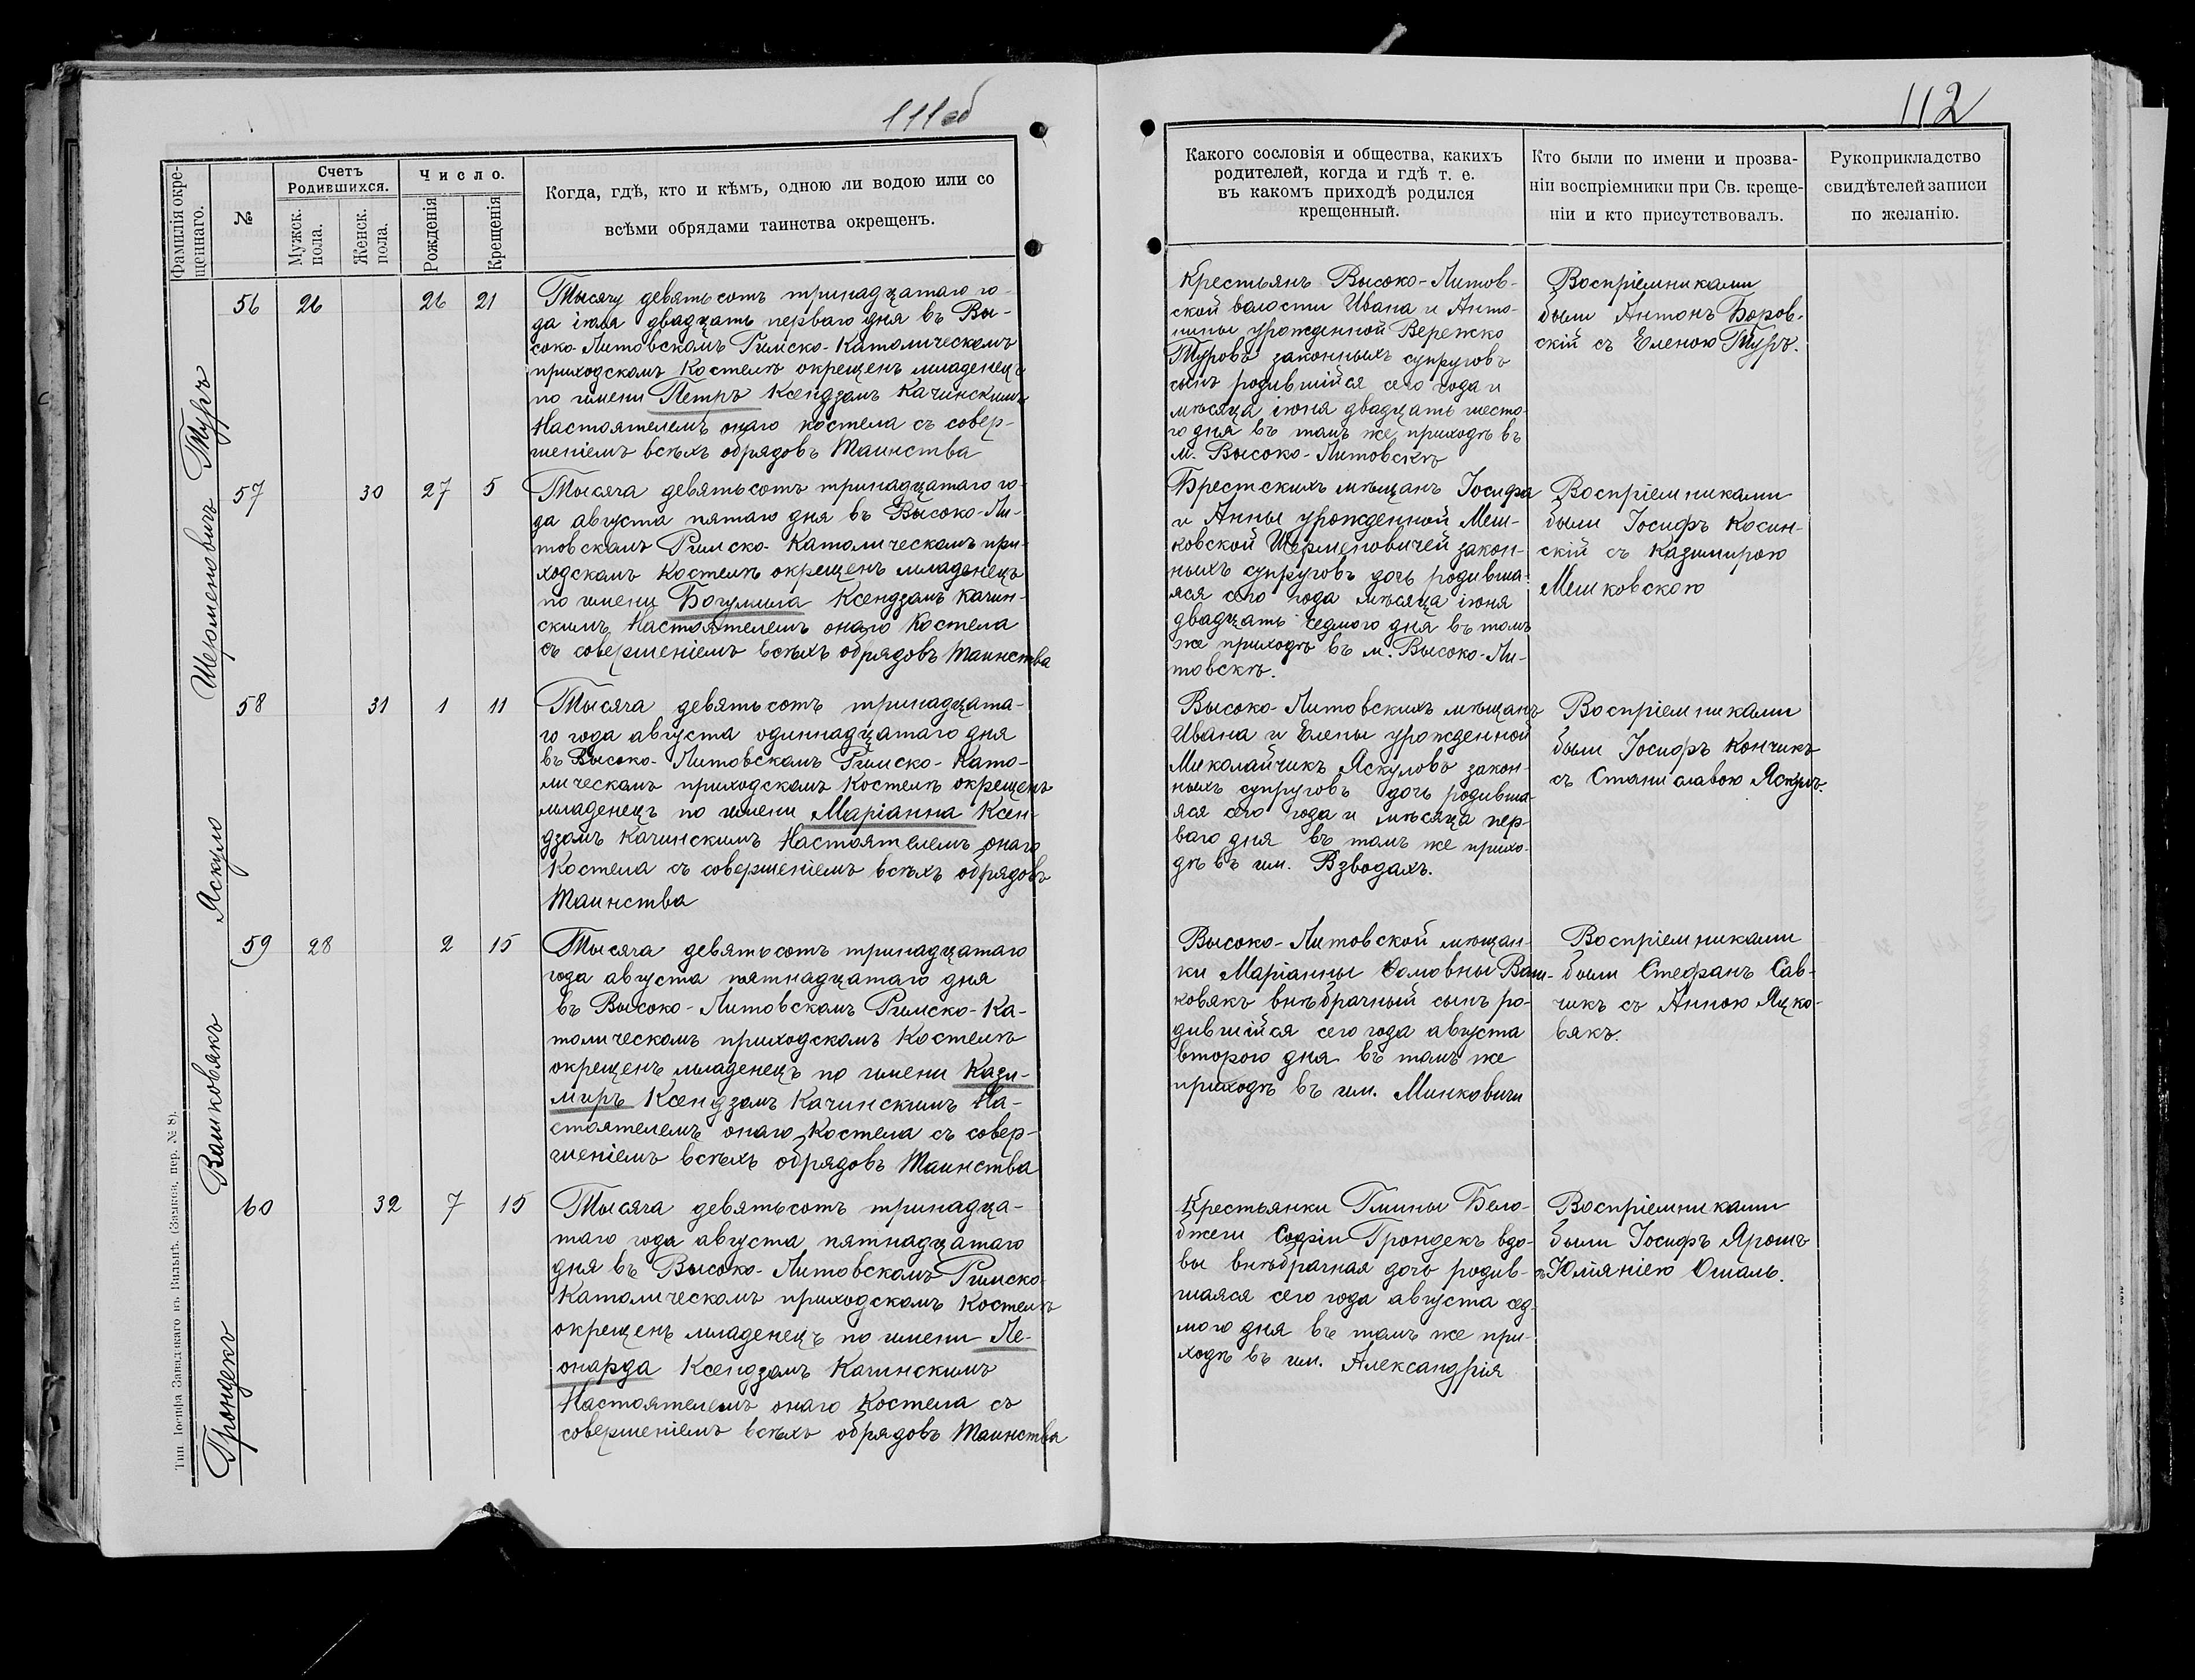 111об
Фамилія окре-
щеннаго.
№
Счетъ
Родившихся.
Мужск.
пола.
Женск.
пола.
Число.
Рожденія
Крещенія
Когда, гдѣ, кто и кѣмъ, одною ли водою или со
всѣми обрядами таинства окрещенъ.
Туръ
56 26 26 21
Тысячу девятьсотъ тринадцатаго го-
да іюля двадцать перваго дня въ Вы-
соко-Литовскомъ Римско-Католическомъ
приходскомъ Костелѣ окрещенъ младенецъ
по имени Петръ Ксендзомъ Качинскимъ
Настоятелемъ онаго костела съ совер-
шеніемъ всѣхъ обрядовъ Таинства
Шерменовичъ
57 30 27 5
Тысяча девятьсотъ тринадцатаго го-
да августа пятаго дня въ Высоко-Ли-
товскомъ Римско-Католическомъ при-
ходскомъ Костелѣ окрещенъ младенецъ
по имени Богумила Ксендзомъ Качин-
скимъ Настоятелемъ онаго Костела
съ совершеніемъ всѣхъ обрядовъ Таинства
Яскуло
58 31 1 11
Тысяча девятьсотъ тринадцата-
го года августа одиннадцатаго дня
въ Высоко-Литовскомъ Римско-Като-
лическомъ приходскомъ Костелѣ окрещенъ
младенецъ по имени Маріанна Ксен-
дзомъ Качинскимъ Настоятелемъ онаго
Костела съ совершеніемъ всѣхъ обрядовъ
Таинства
Вашковякъ
59 28 2 15
Тысяча девятьсотъ тринадцатаго
года августа пятнадцатаго дня
въ Высоко-Литовскомъ Римско-Ка-
толическомъ приходскомъ Костелѣ
окрещенъ младенецъ по имени Кази-
миръ Ксендзомъ Качинскимъ На-
стоятелемъ онаго Костела съ совер-
шеніемъ всѣхъ обрядовъ Таинства
60 32 7 15
Тысяча девятьсотъ тринадца-
таго года августа пятнадцатаго
дня въ Высоко-Литовскомъ Римско-
Католическомъ приходскомъ Костелѣ
окрещенъ младенецъ по имени Ле-
онарда Ксендзомъ Качинскимъ
Настоятелемъ онаго Костела съ
совершеніемъ всѣхъ обрядовъ Таинства
Тип. Іосифа Завадзкаго въ Вильнѣ. (Замков. пер. № 8).
112
Какого сословія и общества, какихъ
родителей, когда и гдѣ т. е.
въ какомъ приходѣ родился
крещенный.
Кто были по имени и прозва-
ніи воспріемники при Св. креще-
ніи и кто присутствовалъ.
Рукоприкладство
свидѣтелей записи
по желанію.
Крестьянъ Высоко-Литов-
ской волости Ивана и Анто-
нины урожденной Вережко
Туровъ законныхъ супруговъ
сынъ родившійся сего года и
мѣсяца іюня двадцать шесто-
го дня въ томъ же приходѣ въ
м. Высоко-Литовскѣ
Воспріемниками
были Антонъ Боров-
скій съ Еленою Туръ.
Брестскихъ мѣщанъ Іосифа
и Анны урожденной Меш-
ковской Шерменовичей закон-
ныхъ супруговъ дочь родивша-
яся сего года мѣсяца іюня
двадцать седмого дня въ томъ
же приходѣ въ м. Высоко-Ли-
товскѣ.
Воспріемниками
были Іосифъ Косин-
скій съ Казимирою
Мешковскою
Высоко-Литовскихъ мѣщанъ
Ивана и Елены урожденной
Миколайчикъ Яскуловъ закон-
ныхъ супруговъ дочь родивша-
яся сего года и мѣсяца пер-
ваго дня въ томъ же прихо-
дѣ въ им. Взводахъ.
Воспріемниками
были Іосифъ Кончикъ
съ Станиславою Яскулъ.
Высоко-Литовской мѣщан-
ки Маріанны Ѳомовны Ваш-
ковякъ внѣбрачный сынъ ро-
дившійся сего года августа
второго дня въ томъ же
приходѣ въ им. Минковичи
Воспріемниками
были Стефанъ Сав-
чикъ съ Анною Яцко-
вякъ.
Крестьянки Гмины Бело-
бжеги Софіи Грондекъ вдо-
вы внѣбрачная дочь родив-
шаяся сего года августа сед-
мого дня въ томъ же при-
ходѣ въ им. Александрія
Воспріемниками
были Іосифъ Ярошъ
съ Юліяніею Омаль.